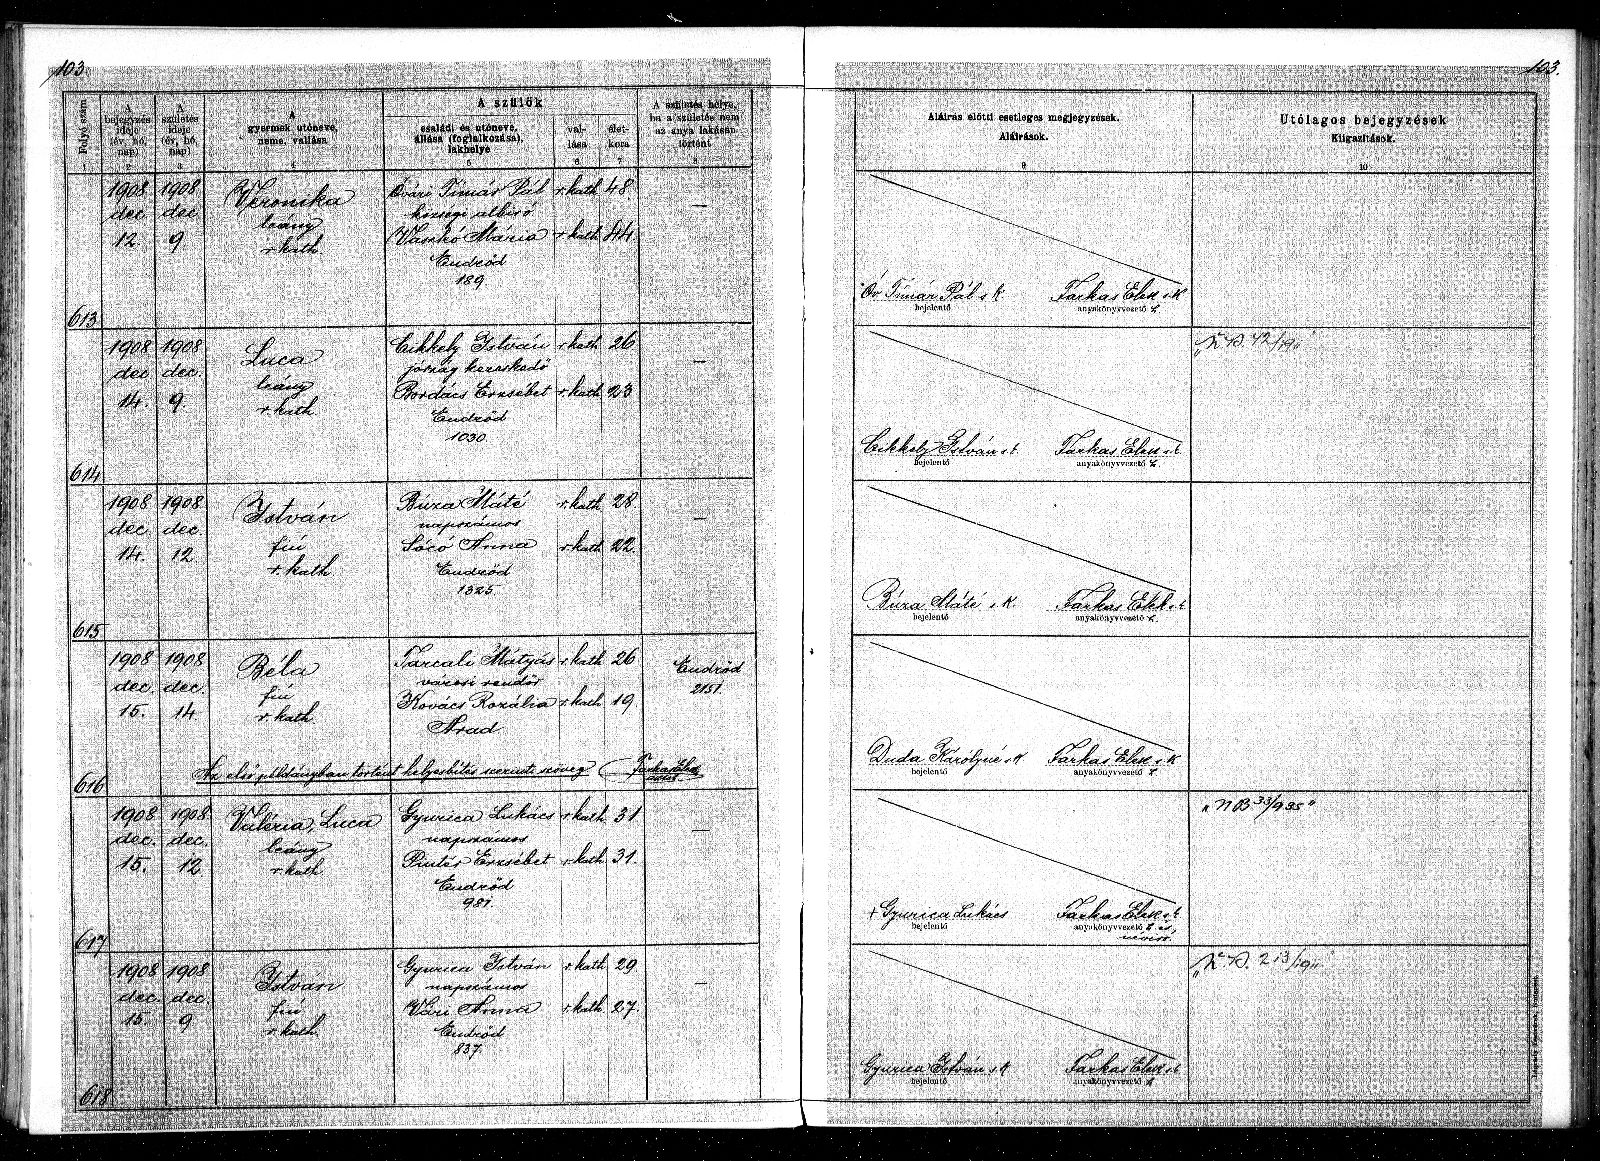 103.
103.
Folyó szám
1
A bejegyzés ideje (év, hó, nap)
2
A születés ideje (év, hó, nap)
3
A gyermek utóneve, neme, vallása
4
A szülők
családi és utóneve, állása (foglalkozása), lakhelye
5
vallása
6
életkora
7
A születés helye, ha a születés nem az anya lakásán történt
8
Aláírás előtti esetleges megjegyzések.
Aláírások.
9
Utólagos bejegyzések
Kiigazítások.
10
613
1908 dec. 12.
1908 dec. 9
Veronika
leány
r. kath
Óvári Tímár Pál r. kath 48.
községi albíró
Vaskó Mária r. kath 44.
Endrőd
189.
—
Óv Tímár Pál s K
bejelentő
Farkas Elek s. K
anyakönyvvezető
614
1908 dec 14.
1908 dec. 9.
Luca
leány
r. kath
Cikkely István r. kath 26
jószág kereskedő
Bordács Erzsébet r. kath 23
Endrőd
1030.
—
Cikkely István s. k.
bejelentő
Farkas Elek s. k.
anyakönyvvezető
615
1908 dec. 14.
1908 dec. 12.
István
fiú
r. kath
Búza Máté r. kath 28.
napszámos
Sócó Anna r. kath 22.
Endrőd
1325.
—
Búza Máté s K.
bejelentő
Farkas Elek s. k.
anyakönyvvezető
616
1908 dec. 15.
1908 dec. 14.
Béla
fiú
r. kath
Tarcali Mátyás r. kath 26
városi rendőr
Kovács Rozália r. kath 19
Arad
Endrőd
2151.
Az első példányban történt helyesbítés szerinti szöveg
Farkas Elek
Duda Károlyné s K
bejelentő
Farkas Elek s K
anyakönyvvezető
617
1908 dec. 15.
1908 dec. 12
Valéria, Luca
leány
r. kath
Gyurica Lukács r. kath 31
napszámos
Pintér Erzsébet r. kath 31.
Endrőd
981.
—
"NB 33/935"
+ Gyurica Lukács
bejelentő
Farkas Elek s. k.
anyakönyvvezető és
névíró
618
1908 dec. 15.
1908 dec. 9
István
fiú
r. kath
Gyurica István r. kath 29
napszámos
Vári Anna r. kath 27.
Endrőd
837.
—
Gyurica István s K
bejelentő
Farkas Elek s. k.
anyakönyvvezető